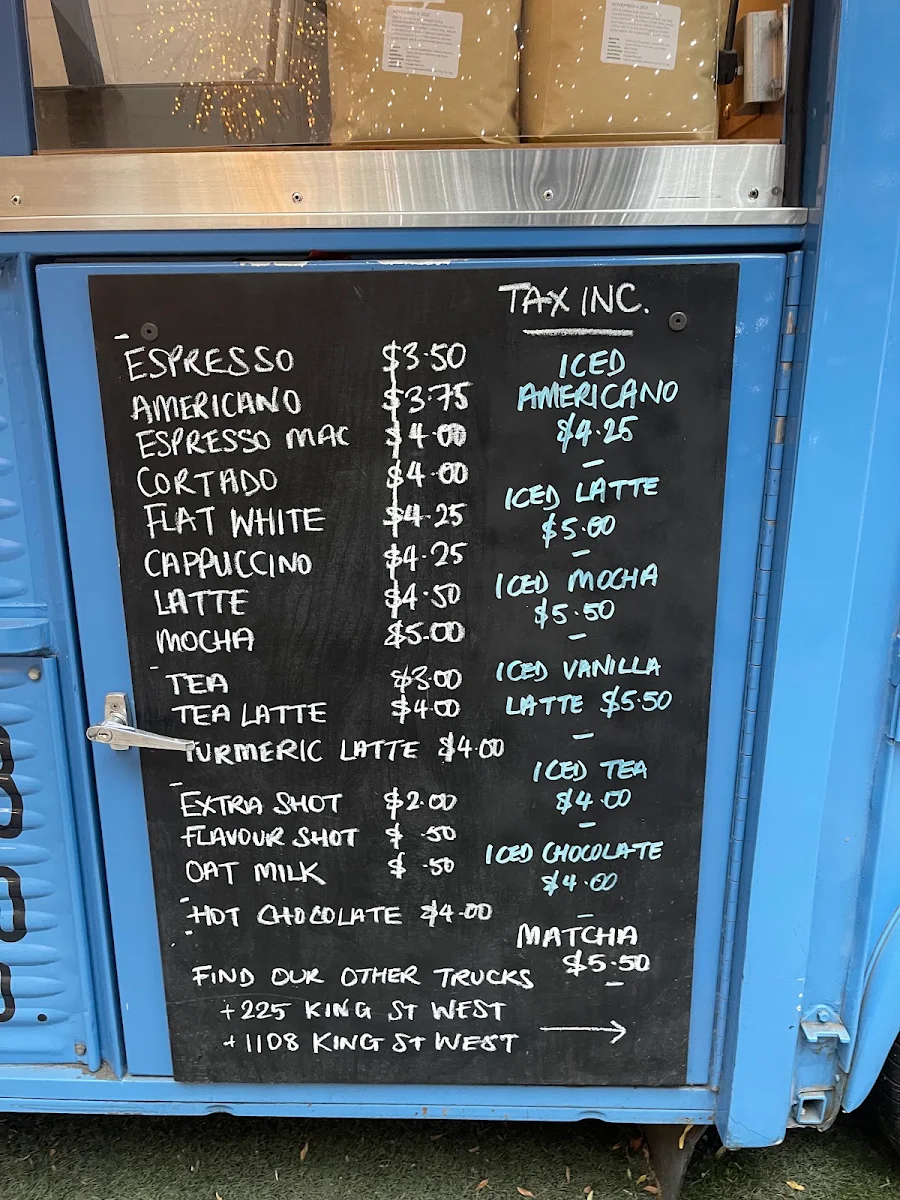 TAX INC.
ESPRESSO $3.50
AMERICANO $3.75
ESPRESSO MAC $4.00
CORTADO $4.00
FLAT WHITE $4.25
CAPPUCCINO $4.25
LATTE $4.50
MOCHA $5.00
TEA $3.00
TEA LATTE $4.00
TURMERIC LATTE $4.00
EXTRA SHOT $2.00
FLAVOUR SHOT $ .50
OAT MILK $ .50
HOT CHOCOLATE $4.00
FIND OUR OTHER TRUCKS
+225 KING ST WEST
+1108 KING ST WEST →
ICED
AMERICANO
$4.25
ICED LATTE
$5.00
ICED MOCHA
$5.50
ICED VANILLA
LATTE $5.50
ICED TEA
$4.00
ICED CHOCOLATE
$4.00
MATCHA
$5.50